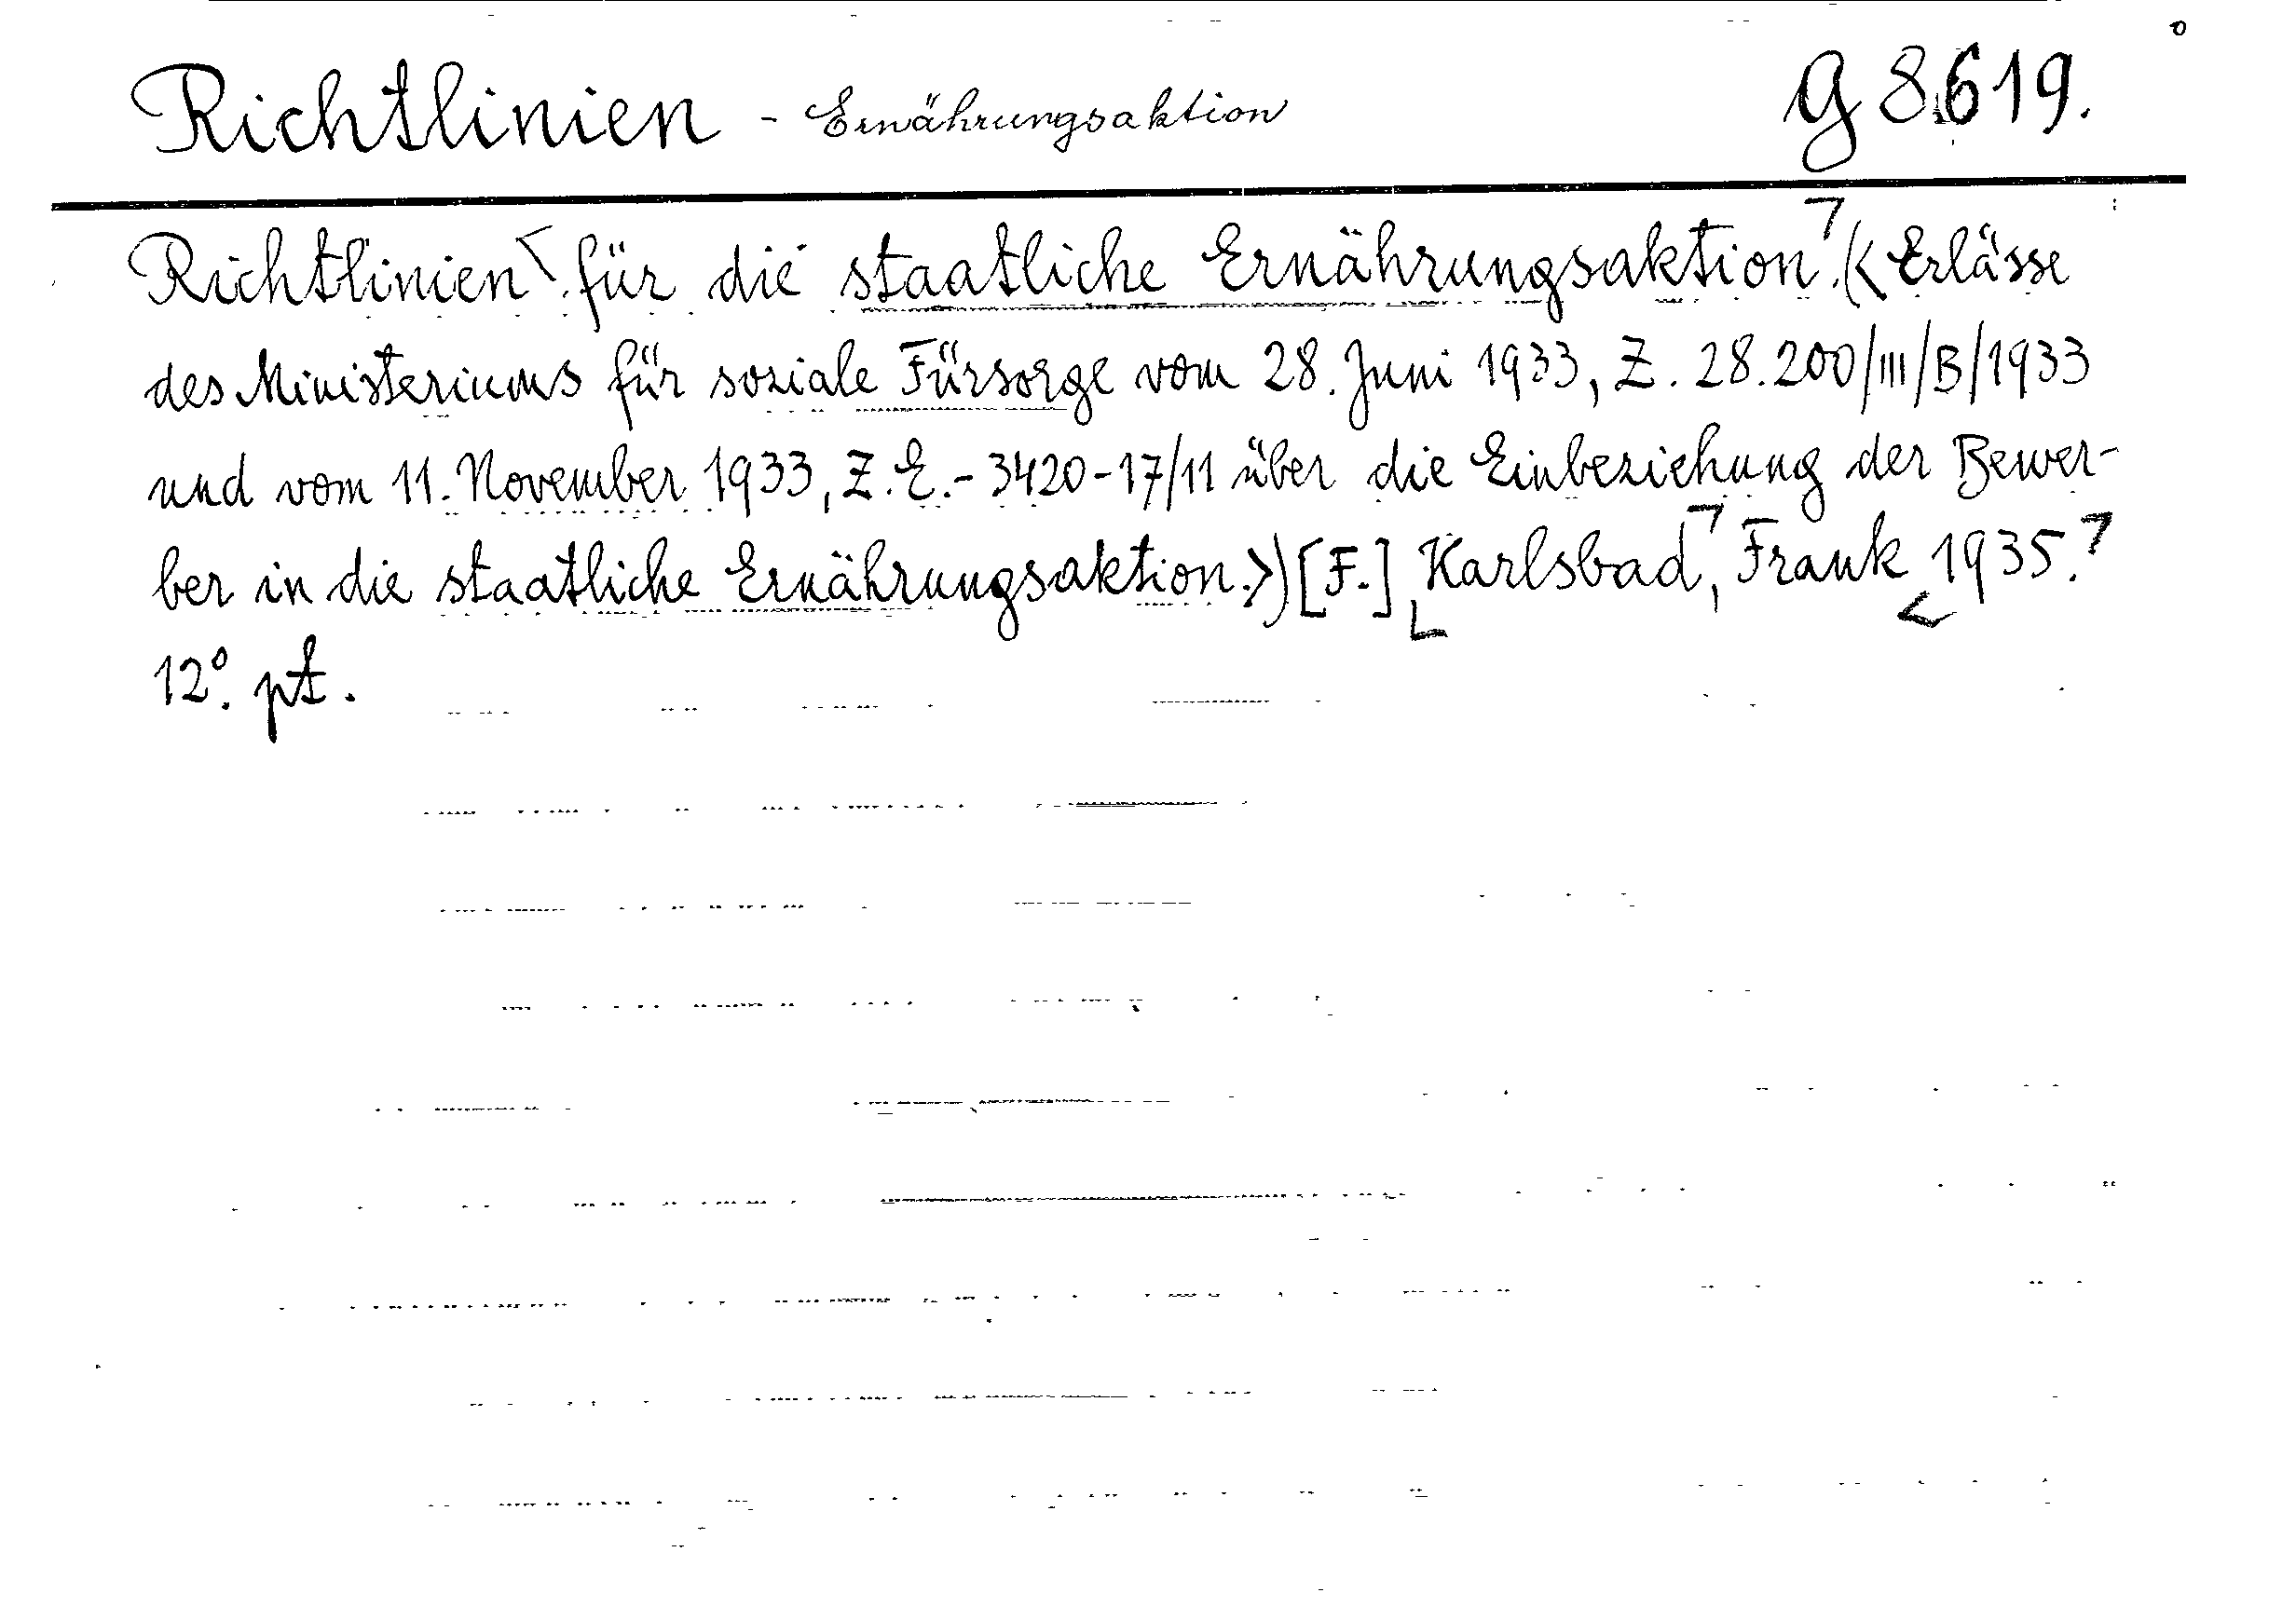 Richtlinien - Ernährungsaktion G 8619.
Richtlinien für die staatliche Ernährungsaktion. (< Erlässe
des Ministeriums für soziale Fürsorge vom 28. Juni 1933, Z. 28.200/III/B/1933
und vom 11. November 1933, Z.E.-3420-17/11 über die Einbeziehung der Bewer-
ber in die staatliche Ernährungsaktion.>) [F.] Karlsbad, Frank 1935.
12°. pt.